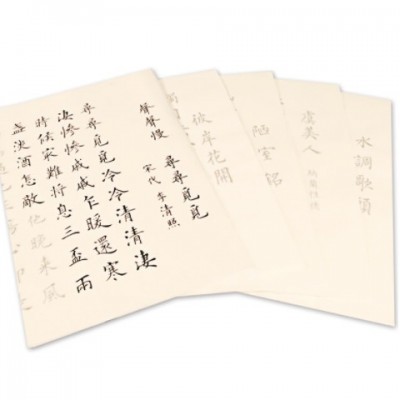 聲聲慢 尋尋覓覓
宋代 李清照
尋尋覓覓冷冷清清淒
淒慘慘戚戚乍暖還寒
時候最難將息三盃兩
盞淡酒怎敵他晚來風
彼岸花開
陋室銘
虞美人
水調歌頭